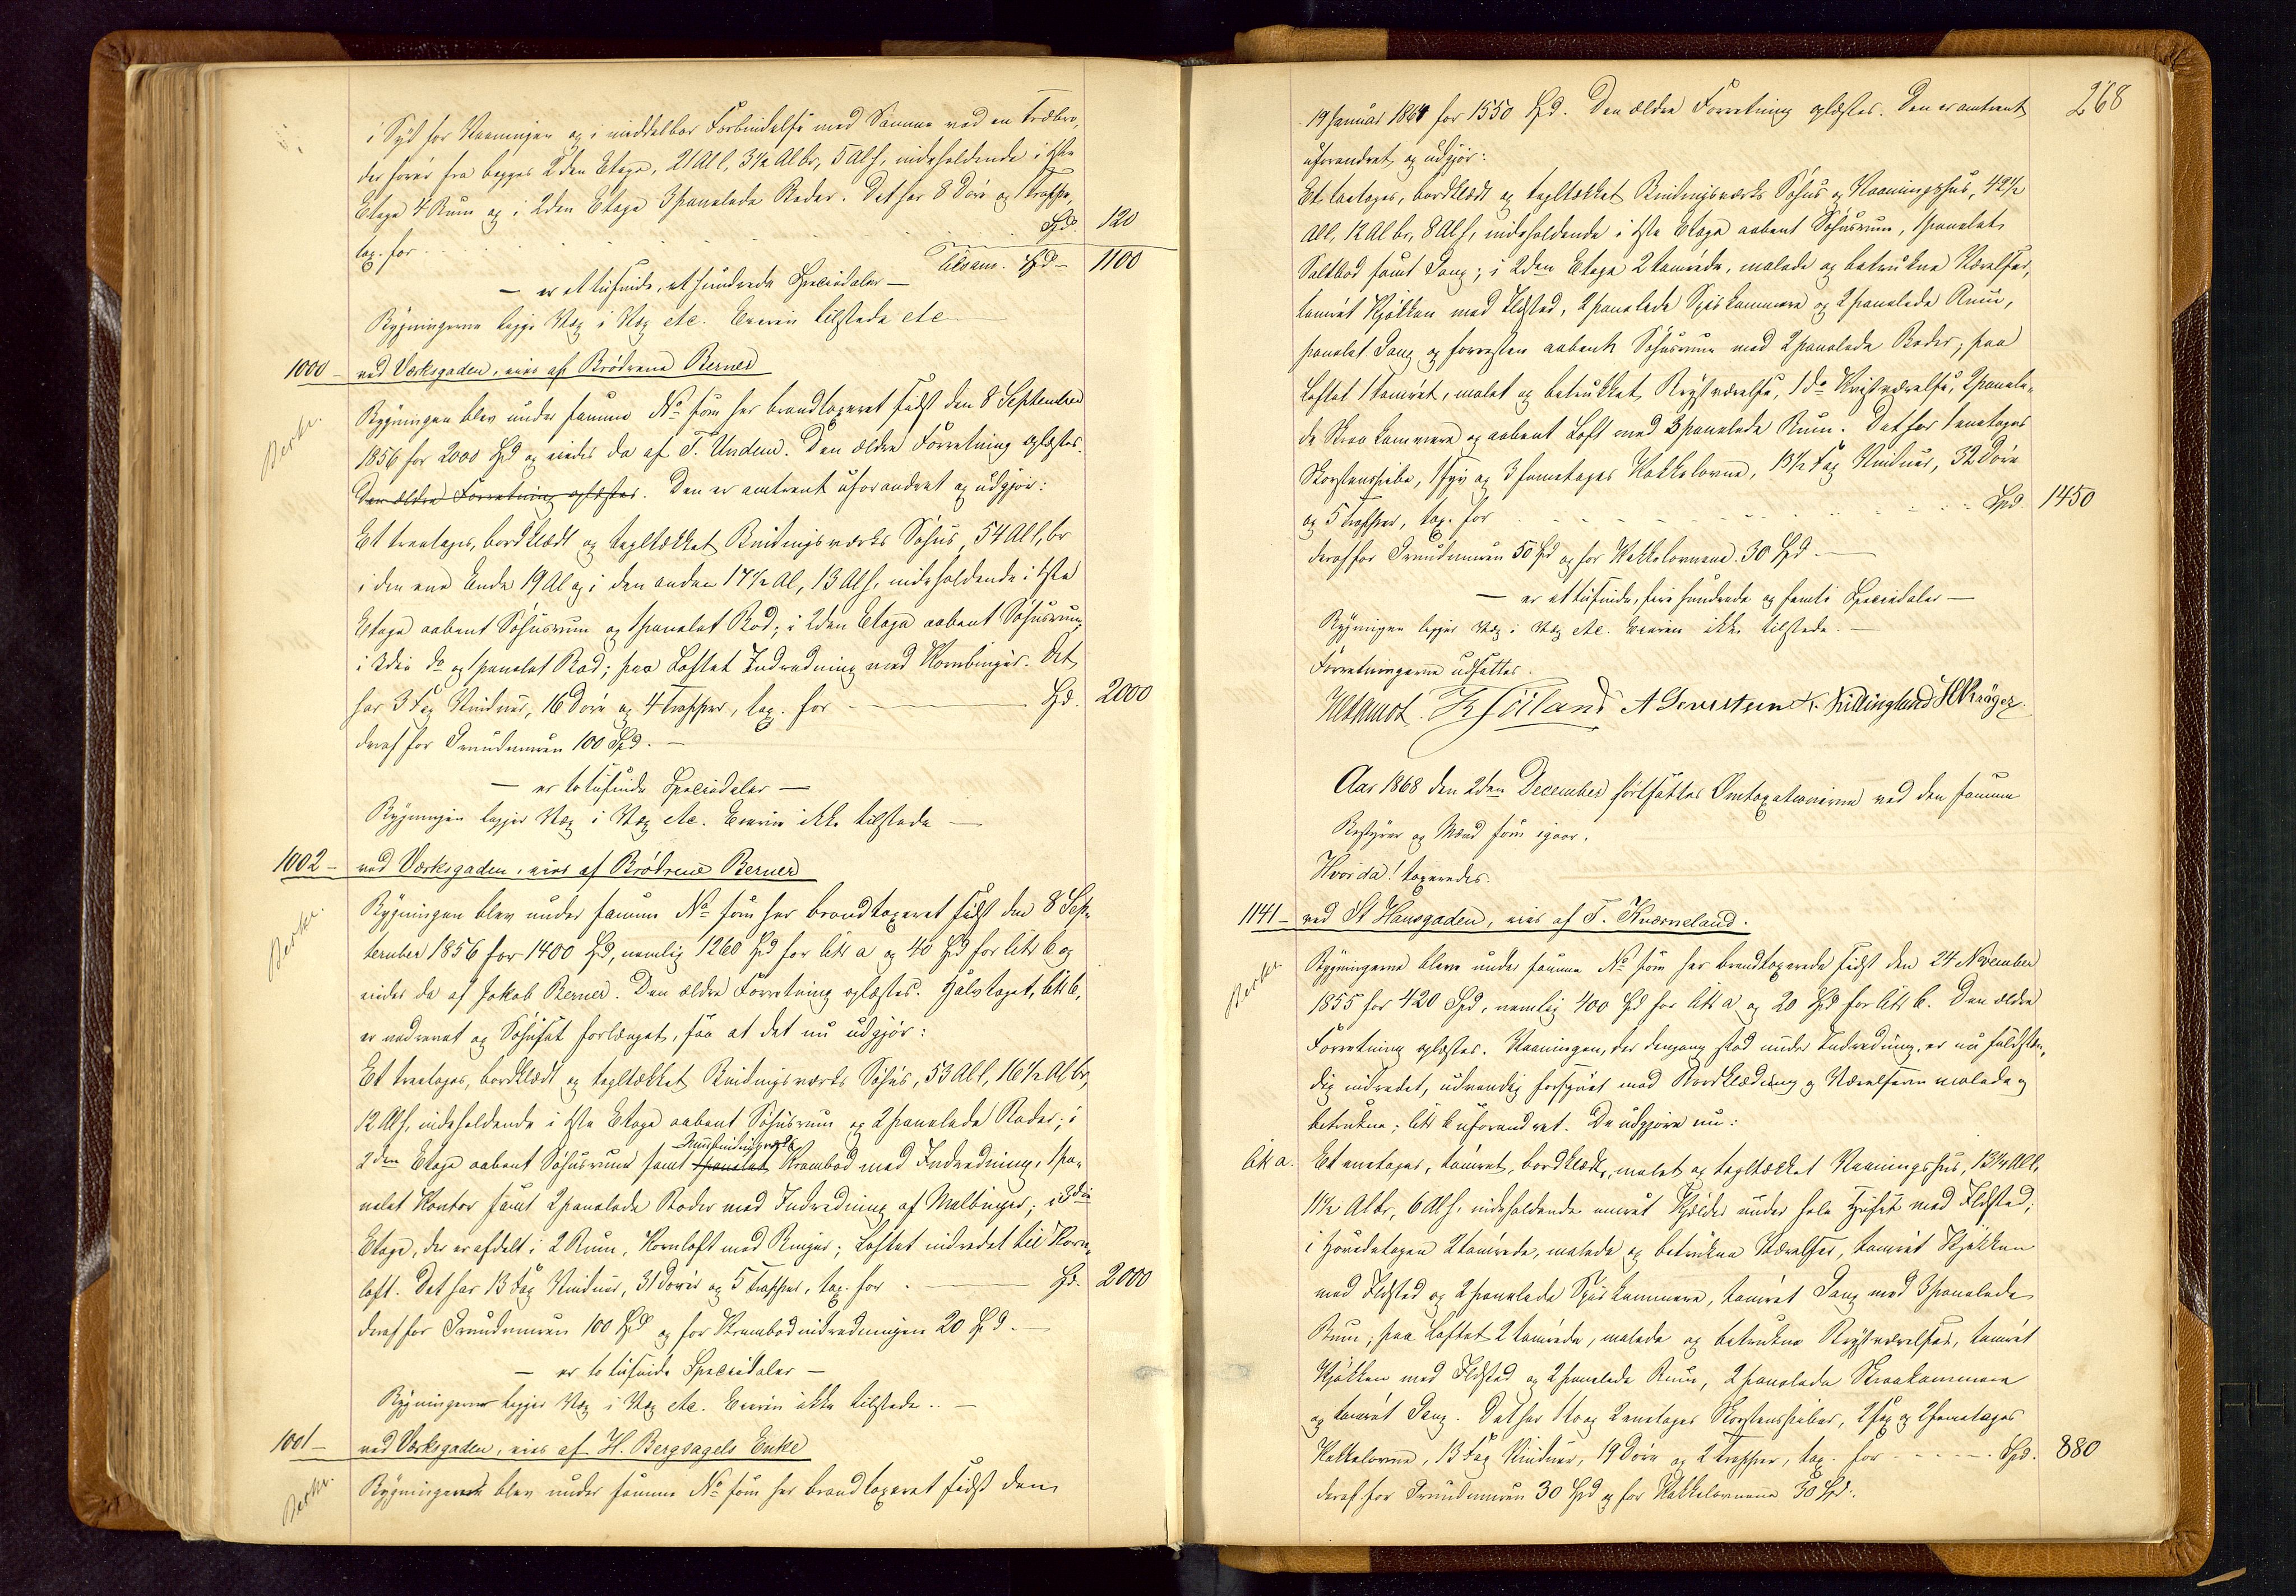 i Syd for Vaaningen og i middelbar Forbindelse med Samme ved en Træbro,
der fører fra begges 2den Etage, 21 Al l, 3½ Al br, 5 Al h, indeholdende i 1ste
Etage 4 Rum og i 2den Etage 3 panelede Boder. Det har 8 Døre og 1 Trappe,
tax. for . . . Spd. 120
Tilsam. Spd – 1100
– er et tusinde, et hundrede Speciedaler –
Bygningerne ligge Væg i Væg etc. Eieren tilstede etc
1000 – ved Værksgaden, eies af Brødrene Berner
Berkr.
Bygningen blev under samme No som her brandtaxeret sidst den 8 September
1856 for 2000 Spd og eiedes da af T. Undem. Den ældre Forretning oplæstes.
Den ældre Forretning oplæstes. Den er omtrent uforandret og udgjør:
Et treetages, bordklædt og tegltækket Bindingsværks Søhus, 54 Al l, br
i den ene Ende 19 Al og i den anden 17½ Al, 13 Al h, indeholdende i 1ste
Etage aabent Søhusrum og 1 panelet Bod; i 2den Etage aabent Søhusrum,
i 3die do og 1 panelet Bod; paa Loftet Indredning med Kornbinger. Det
har 3 Fag Vinduer, 16 Døre og 4 Trapper, tax. for Spd. 2000
deraf for Grundmuren 100 Spd. –
– er to tusinde Speciedaler –
Bygningen ligger Væg i Væg etc. Eieren ikke tilstede –
1002 – ved Værksgaden, eies af Brødrene Berner
Berkr.
Bygningen blev under samme No som her brandtaxeret sidst den 8 Sep-
tember 1856 for 1400 Spd, nemlig 1260 Spd for litr a og 40 Spd for litr b og
eiedes da af Jakob Berner. Den ældre Forretning oplæstes. Halvtaget, litr b,
er nedrevet og Søhuset forlænget, saa at det nu udgjør:
Et treetages, bordklædt og tegltækket Bindingsværks Søhus, 53 Al l, 16½ Al br,
12 Al h, indeholdende i 1ste Etage aabent Søhusrum og 2 panelede Boder; i
2den Etage aabent Søhusrum samt 1 panelet Krambod med Indredning, 1 pa-
nelet Kontor samt 2 panelede Boder med Indredning af Melbinger; i 3die
Etage, der er afdelt i 2 Rum, Kornloft med Binger; Loftet indredet til Korn-
loft. Det har 13 Fag Vinduer, 31 Dører og 5 Trapper, tax. for Spd. 2000
deraf for Grundmuren 100 Spd og for Krambodindredningen 20 Spd. –
– er to tusinde Speciedaler –
Bygningerne ligger Væg i Væg etc. Eieren ikke tilstede.. –
1001 – ved Værksgaden, eies af H. Bergsagels Enke
Berkr.
Bygningerne blev under samme No som her brandtaxeret sidst den
268
19 Januar 1864 for 1550 Spd. Den ældre Forretning oplæstes. Den er omtrent
uforandret og udgjør:
Et toetages, bordklædt og tegltækket Bindingsværks Søhus og Vaaningshus, 42½
Al l, 12 Al br, 8 Al h, indeholdende i 1ste Etage aabent Søhusrum, 1 panelet
Saltbod samt Gang; i 2den Etage 2 tømrede, malede og betrukne Værelser,
tømret Kjøkken med Ildsted, 2 panelede Spiskammere og 2 panelede Rum,
panelet Gang og forresten aabent Søhusrum med 2 panelede Boder; paa
Loftet 1 tømret, malet og betrukket Kvistværelse, 1 do Kvistværelse, 2 panele-
de Skraakammere og aabent Loft med 3 panelede Rum. Det har 1 enetages
Skorstenspibe, 1 fyr og 3 femetages Kakkelovne, 13½ Fag Vinduer, 32 Døre
og 5 Trapper, tax. for . . . Spd. 1450
deraf for Grundmuren 50 Spd og for Kakkelovnene 30 Spd. –
– er et tusinde, fire hundrede og femti Speciedaler –
Bygningen ligger Væg i Væg etc. Eieren ikke tilstede. –
Forretningerne udsattes.
Aar 1868 den 2den December fortsattes Omtaxationerne ved den samme
Bestyrer og Mænd som igaar.
Hvorda! taxeredes.
1141 – ved St Hansgaden, eies af T. Kværneland.
Berkr.
Bygningerne bleve under samme No som her brandtaxerede sidst den 24 November
1855 for 420 Spd, nemlig 400 Spd for litr a og 20 Spd for litr b. Den ældre
Forretning oplæstes. Vaaningen, der dengang stod under Indredning, er nu fuldstæn-
dig indredet, udvendig forsynet med Bordklædning og Værelserne malede og
betrukne; litr b uforandret. De udgjøre nu:
litr a. Et enetages, tømret, bordklædt, malet og tegltækket Vaaningshus, 13¼ Al l,
11½ Al br, 6 Al h, indeholdende muret Kjælder under hele Huset med Ildsted;
i Hovedetagen 2 tømrede, malede og betrukne Værelser, tømret Kjøkken
med Ildsted og 2 panelede Spiskammere, tømret Gang med 3 panelede
Rum; paa Loftet 2 tømrede, malede og betrukne Kvistværelser, tømret
Kjøkken med Ildsted og 2 panelede Rum, 2 panelede Skraakammere
og tømret Gang. Det har 1 to og 2 enetages Skorstenspiber, 2 fyr og 2 femetages
Kakkelovne, 13 Fag Vinduer, 19 Døre og 2 Trapper, tax. for . . . Spd. 880
deraf for Grundmuren 30 Spd og for Kakkelovnene 30 Spd.